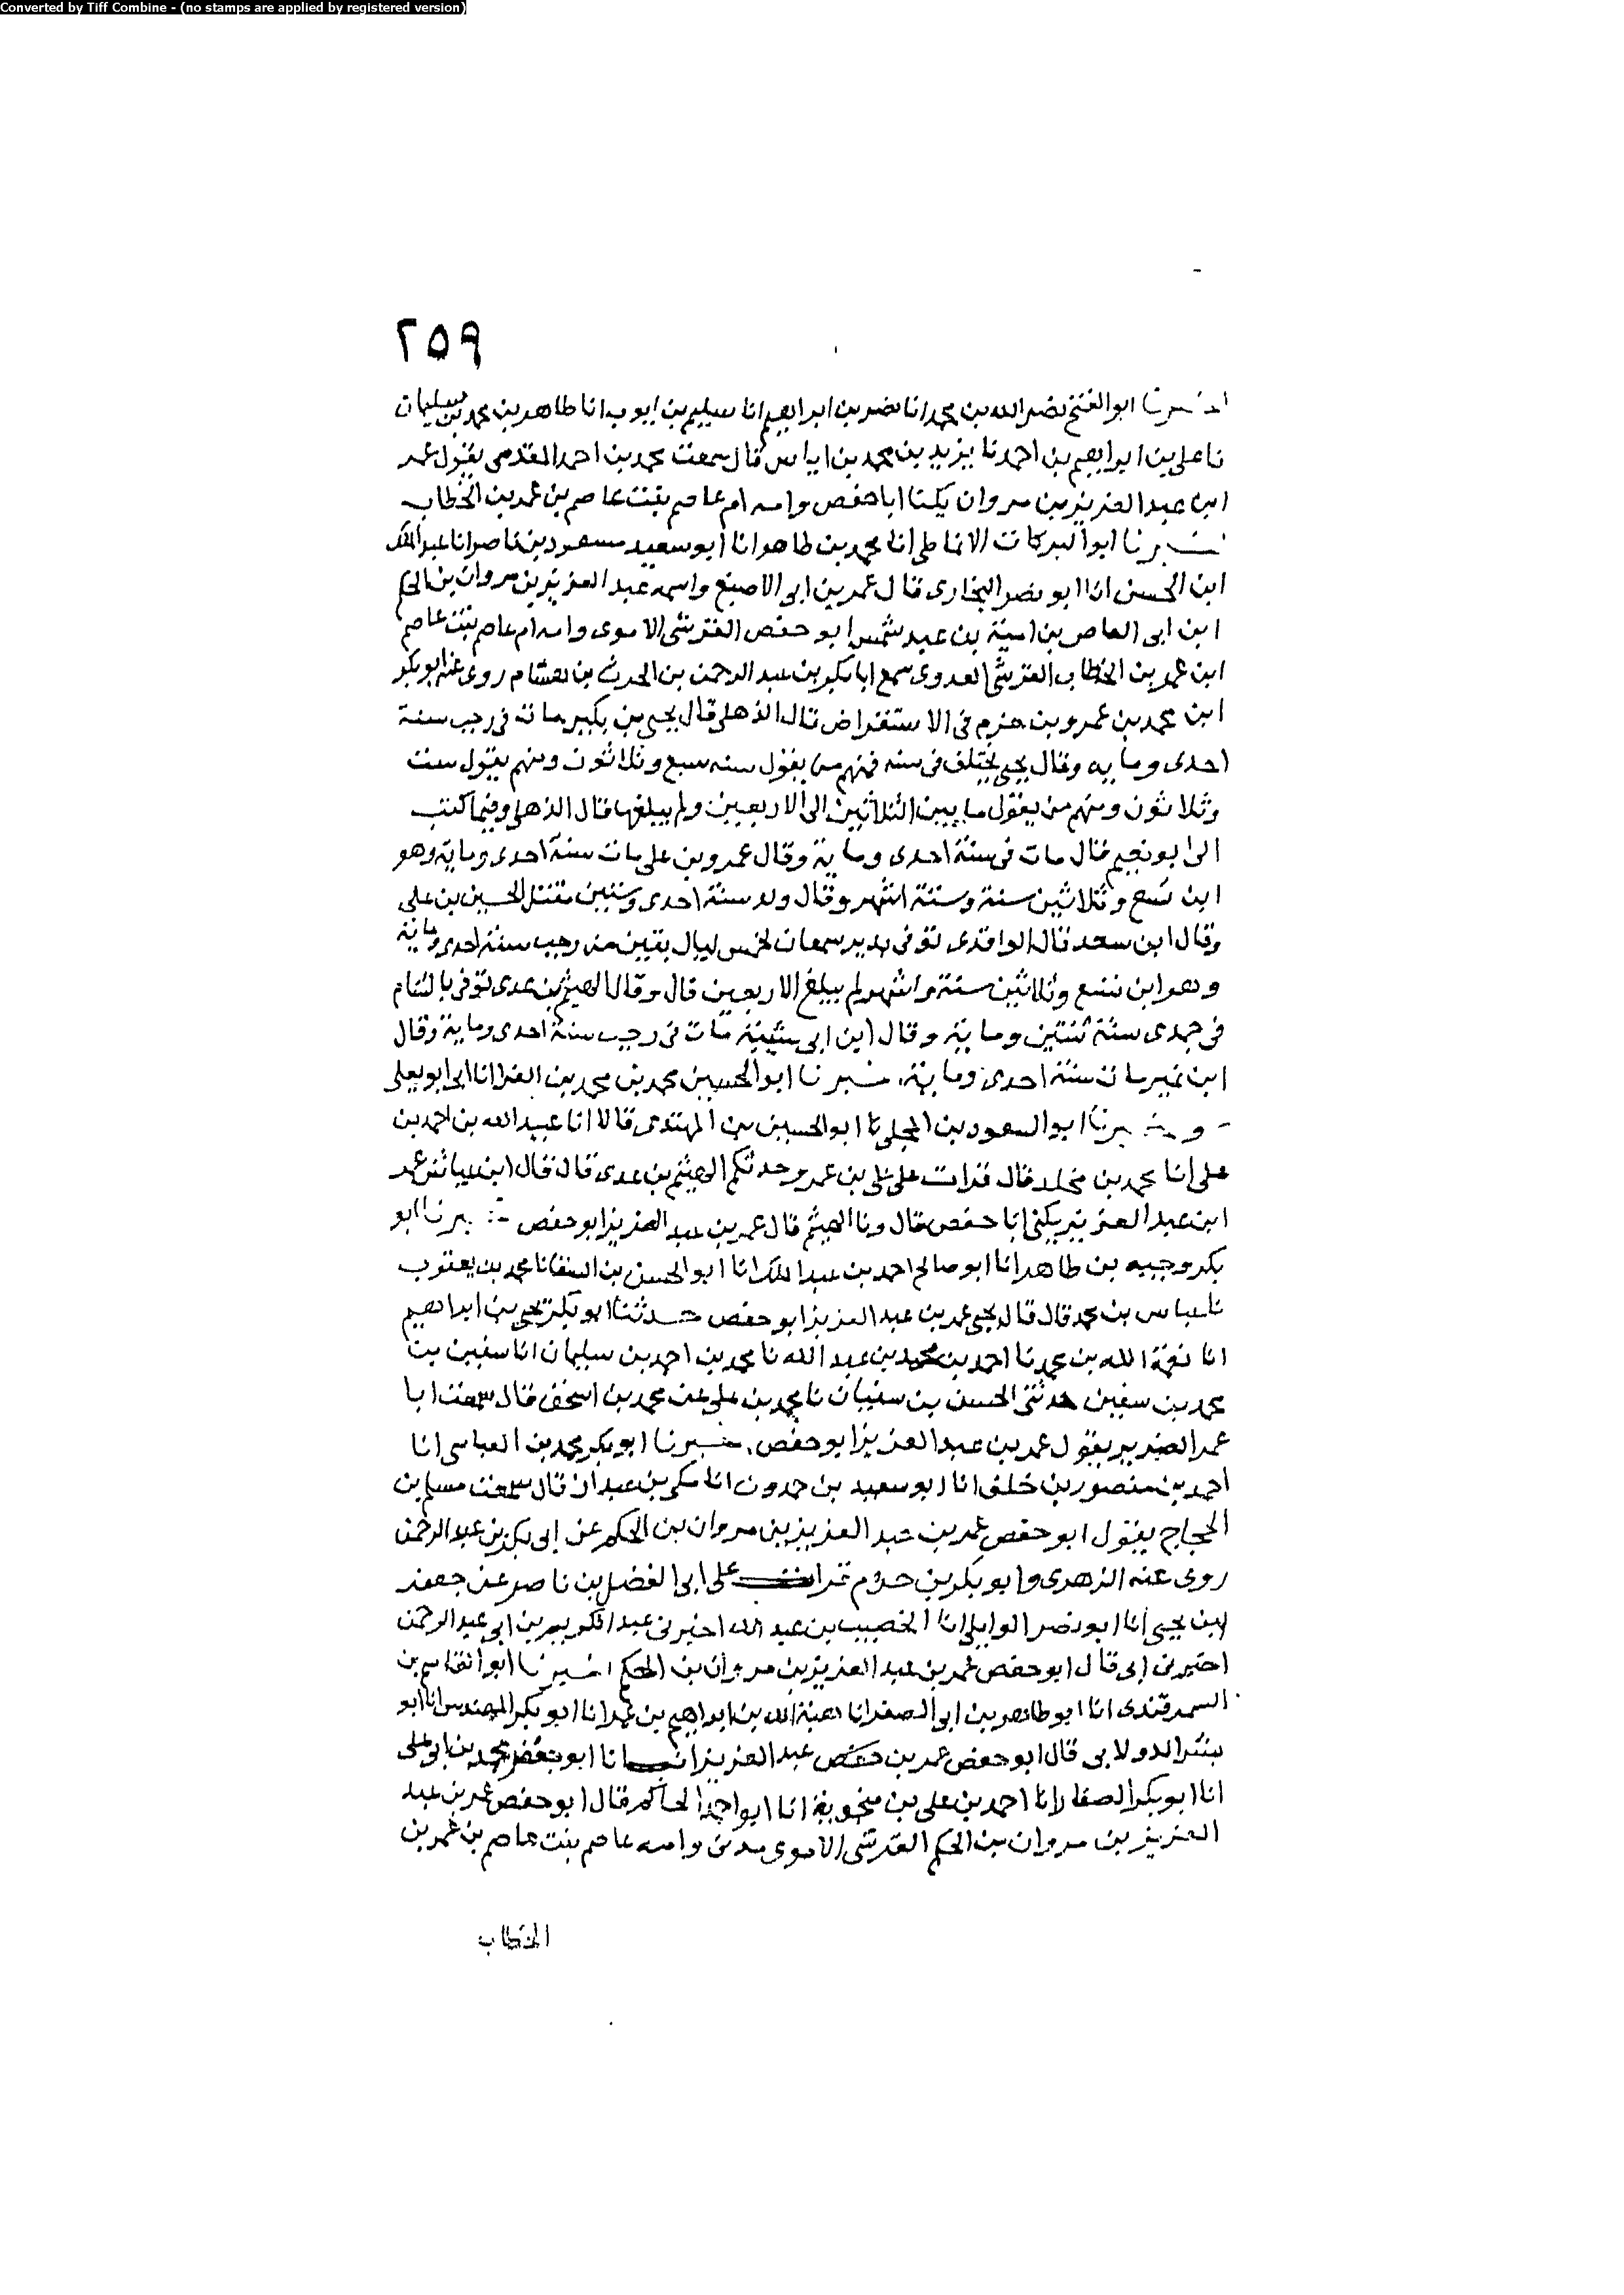 Converted by Tiff Combine - (no stamps are applied by registered version)
٢٥٩
اخبرنا ابو الفتح نصر الله بن محمد انا نصر بن ابراهيم انا سليم بن ايوب انا طاهر بن محمد بن سليمان
نا علي بن ابراهيم بن احمد نا يزيد بن محمد بن اياس قال سمعت محمد بن احمد المقدمي يقول عمر
ابن عبد العزيز بن مروان يكنا ابا حفص وامه ام عاصم بنت عاصم بن عمر بن الخطاب
خبرنا ابو البركات الانماطي انا محمد بن طاهر انا ابو سعيد مسعود بن ناصر انا عبد الملك
ابن الحسن انا ابو نصر البخاري قال عمر بن ابي الاصبغ واسمه عبد العزيز بن مروان بن الحكم
ابن ابي العاص بن امية بن عبد شمس ابو حفص القرشي الاموي وامه ام عاصم بنت عاصم
ابن عمر بن الخطاب القرشي العدوي سمع ابا بكر بن عبد الرحمن بن الحرث بن هشام روى عنه ابو بكر
ابن محمد بن عمرو بن حزم في الاستقراض قال الذهلي قال يحيى بن بكير مات في رجب سنة
احدى ومايه وقال يحيى يختلف في سنه فمنهم من يقول سنه سبع وثلاثون ومنهم يقول ست
وثلاثون ومنهم من يقول ما بين الثلاثين الى الاربعين ولم يبلغها قال الذهلي وفيما كتب
الى ابو نعيم قال مات في سنة احدى وماية وقال عمرو بن علي مات سنة احدى وماية وهو
ابن تسع وثلاثين سنة وستة اشهر وقال ولد سنة احدى وستين مقتل الحسين بن علي
وقال ابن سعد قال الواقدي توفي بدير سمعان لخمس ليال بقين من رجب سنة احدى وماية
وهو ابن تسع وثلاثين سنة واشهر ولم يبلغ الاربعين قال وقال الهيثم بن عدي توفي بالشام
في جمدى سنة ثنتين وماية وقال ابن ابي شيبة مات في رجب سنة احدى وماية وقال
ابن نمير مات سنة احدى وماية. خبرنا ابو الحسين محمد بن محمد بن الفرا انا ابي ابو يعلى
وخبرنا ابو السعود بن المجلي نا ابو الحسين بن المهتدي قالا انا عبيد الله بن احمد بن
علي انا محمد بن مخلد قال قرات على علي بن عمر وحدثكم الهيثم بن عدي قال قال ابن عياش عمر
ابن عبد العزيز يكنى ابا حفص قال ونا الهيثم قال عمر بن عبد العزيز ابو حفص خبرنا ابو
بكر وجيه بن طاهر انا ابو صالح احمد بن عبد الملك انا ابو الحسن بن السقا نا محمد بن يعقوب
نا عباس بن محمد قال قال يحيى عمر بن عبد العزيز ابو حفص حدثنا ابو بكر يحيى بن ابراهيم
انا نعمة الله بن محمد نا احمد بن محمد بن عبد الله نا محمد بن احمد بن سليمان انا سفين بن
محمد بن سفين حدثني الحسن بن سفيان نا محمد بن علي عن محمد بن اسحق قال سمعت ابا
عمر الضرير يقول عمر بن عبد العزيز ابو حفص. خبرنا ابو بكر محمد بن العباس انا
احمد بن منصور بن خلف انا ابو سعيد بن حمدون انا مكي بن عبدان قال سمعت مسلم بن
الحجاج يقول ابو حفص عمر بن عبد العزيز بن مروان بن الحكم عن ابي بكر بن عبد الرحمن
روى عنه الزهري وابو بكر بن حزم قرات على ابي الفضل بن ناصر عن جعفر
ابن يحيى انا ابو نصر الوايلي انا الخصيب بن عبد الله اخبرني عبد الكريم بن ابي عبد الرحمن
اخبرني ابي قال ابو حفص عمر بن عبد العزيز بن مروان بن الحكم خبرنا ابو القاسم بن
السمرقندي انا ابو طاهر بن ابي الصقر انا هبة الله بن ابراهيم بن عمر انا ابو بكر المهندس انا ابو
بشر الدولابي قال ابو حفص عمر بن عبد العزيز انا ابو جعفر محمد بن ابي علي
انا ابو بكر الصفار انا احمد بن علي بن منجويه انا ابو احمد الحاكم قال ابو حفص عمر بن عبد
العزيز بن مروان بن الحكم القرشي الاموي مدني وامه عاصم بنت عاصم بن عمر بن
الخطاب